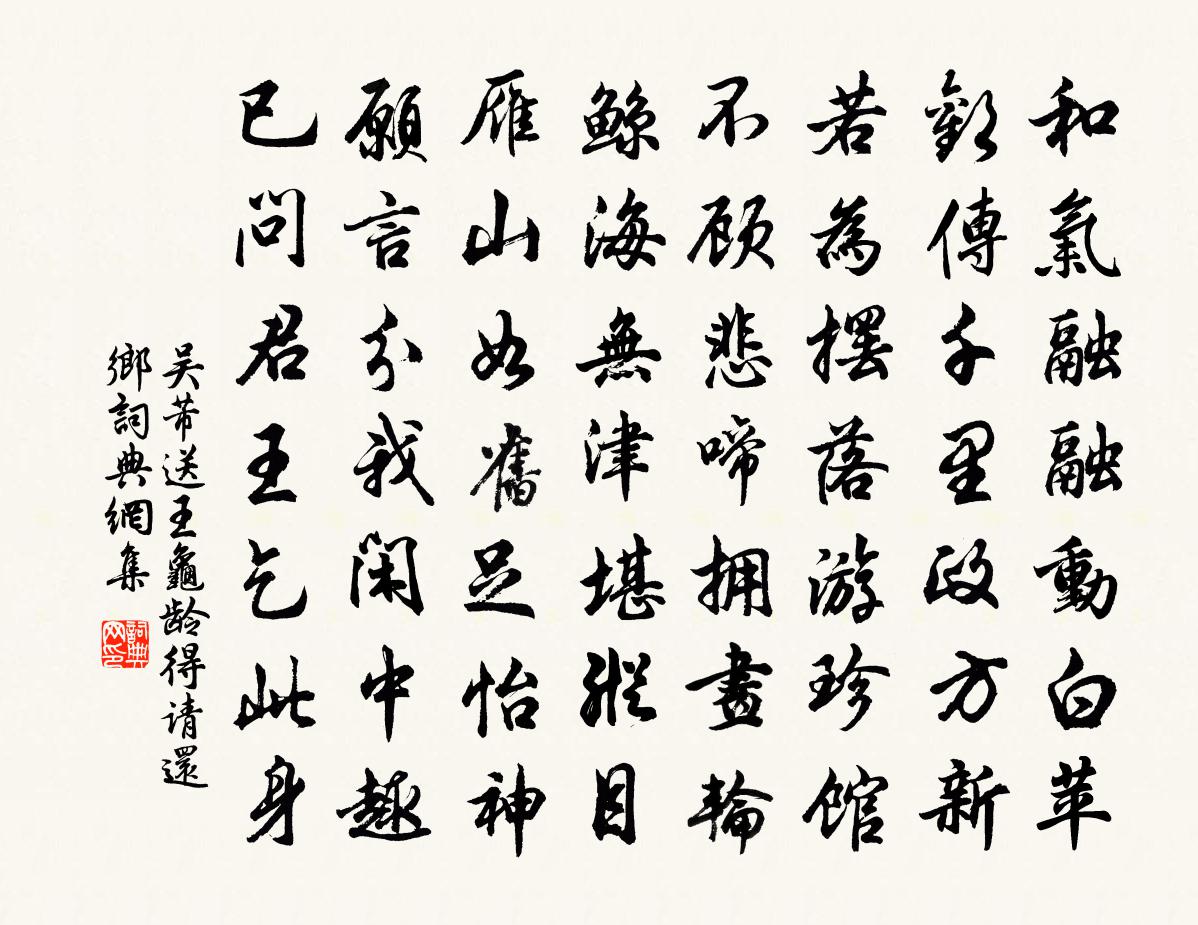 和氣融融動白苹
歡傳千里政方新
若為擺落游珍館
不顧悲啼拥畫輪
鯨海無津堪縱目
雁山如舊足怡神
願言分我閑中趣
已問君王乞此身
吴芾送王龜齡得请還
鄉詞典網集
詞典网印